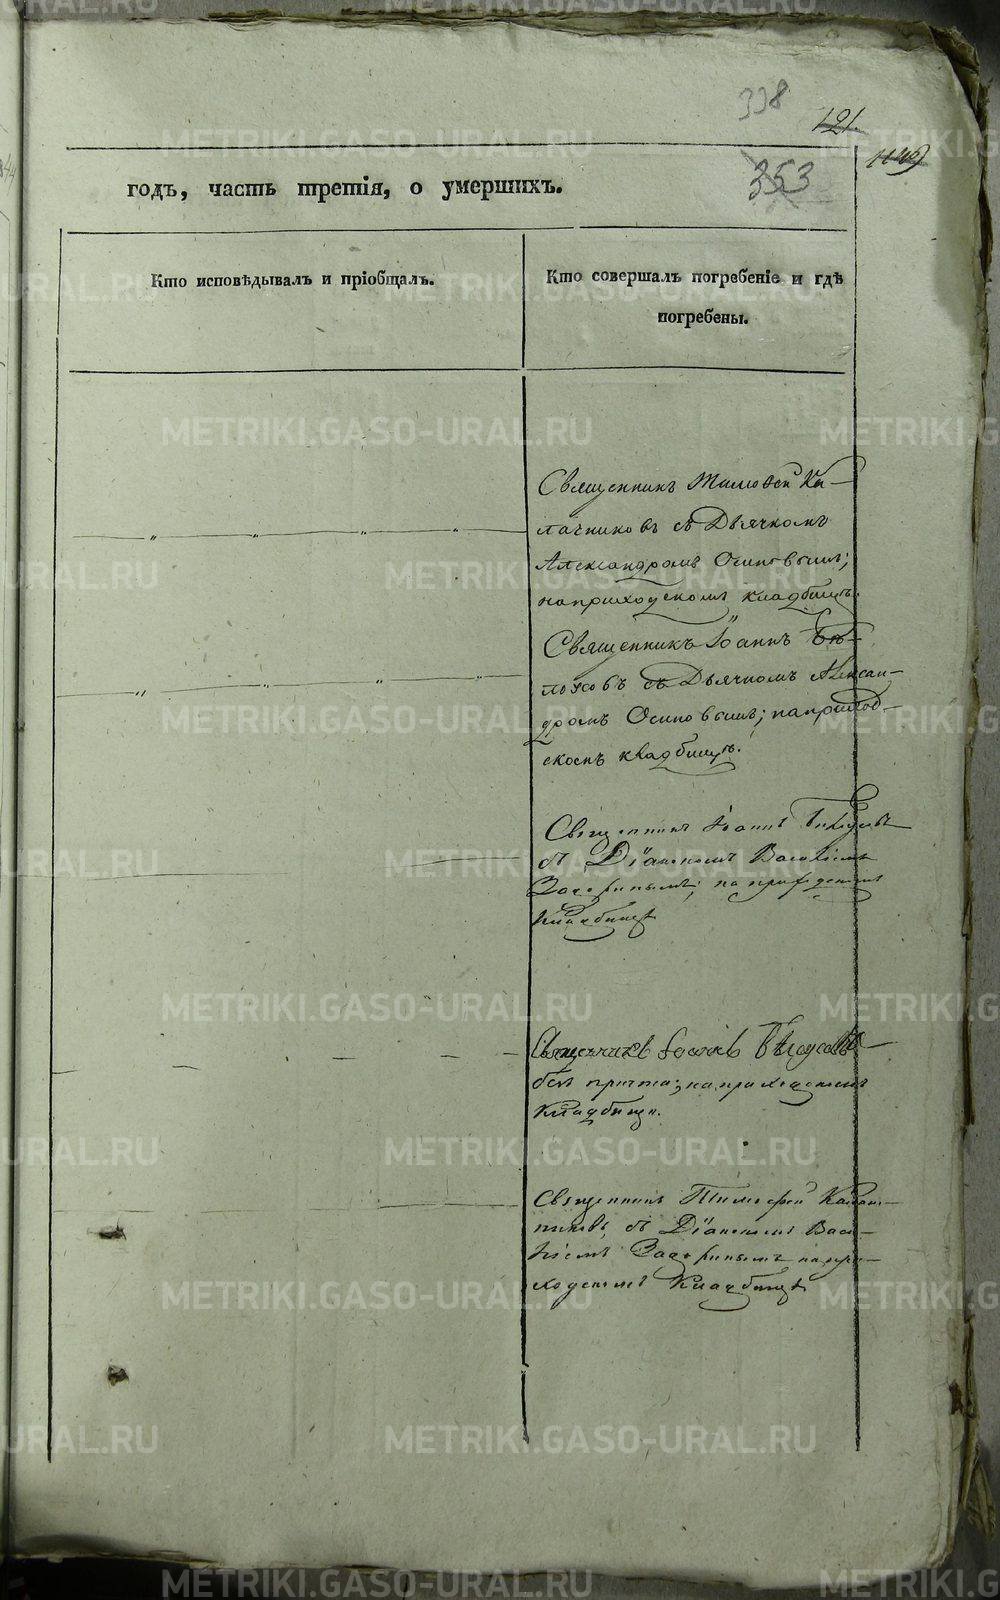 338
121.
1149
353
годъ, часть третія, о умершихъ.
Кто исповѣдывалъ и пріобщалъ.
Кто совершалъ погребеніе и гдѣ
погребены.
Священникъ Тимоѳей Ка-
лачниковъ съ Дьячкомъ
Александромъ Осиповымъ;
на приходскомъ кладбищѣ.
Священникъ Іоаннъ Бѣ-
лоусовъ съ Дьячкомъ Алексан-
дромъ Осиповымъ; на приход-
скомъ кладбищѣ.
Священникъ Іоаннъ Бѣлоусовъ
съ Діакономъ Василіемъ
на приходскомъ
Кладбищѣ
Священникъ Іоаннъ Бѣлоусовъ
безъ причта; на приходскомъ
Кладбищѣ.
Священникъ Тимофей Калач-
никовъ, съ Діакономъ Васи-
ліемъ на при-
ходскомъ Кладбищѣ
METRIKI.GASO-URAL.RU